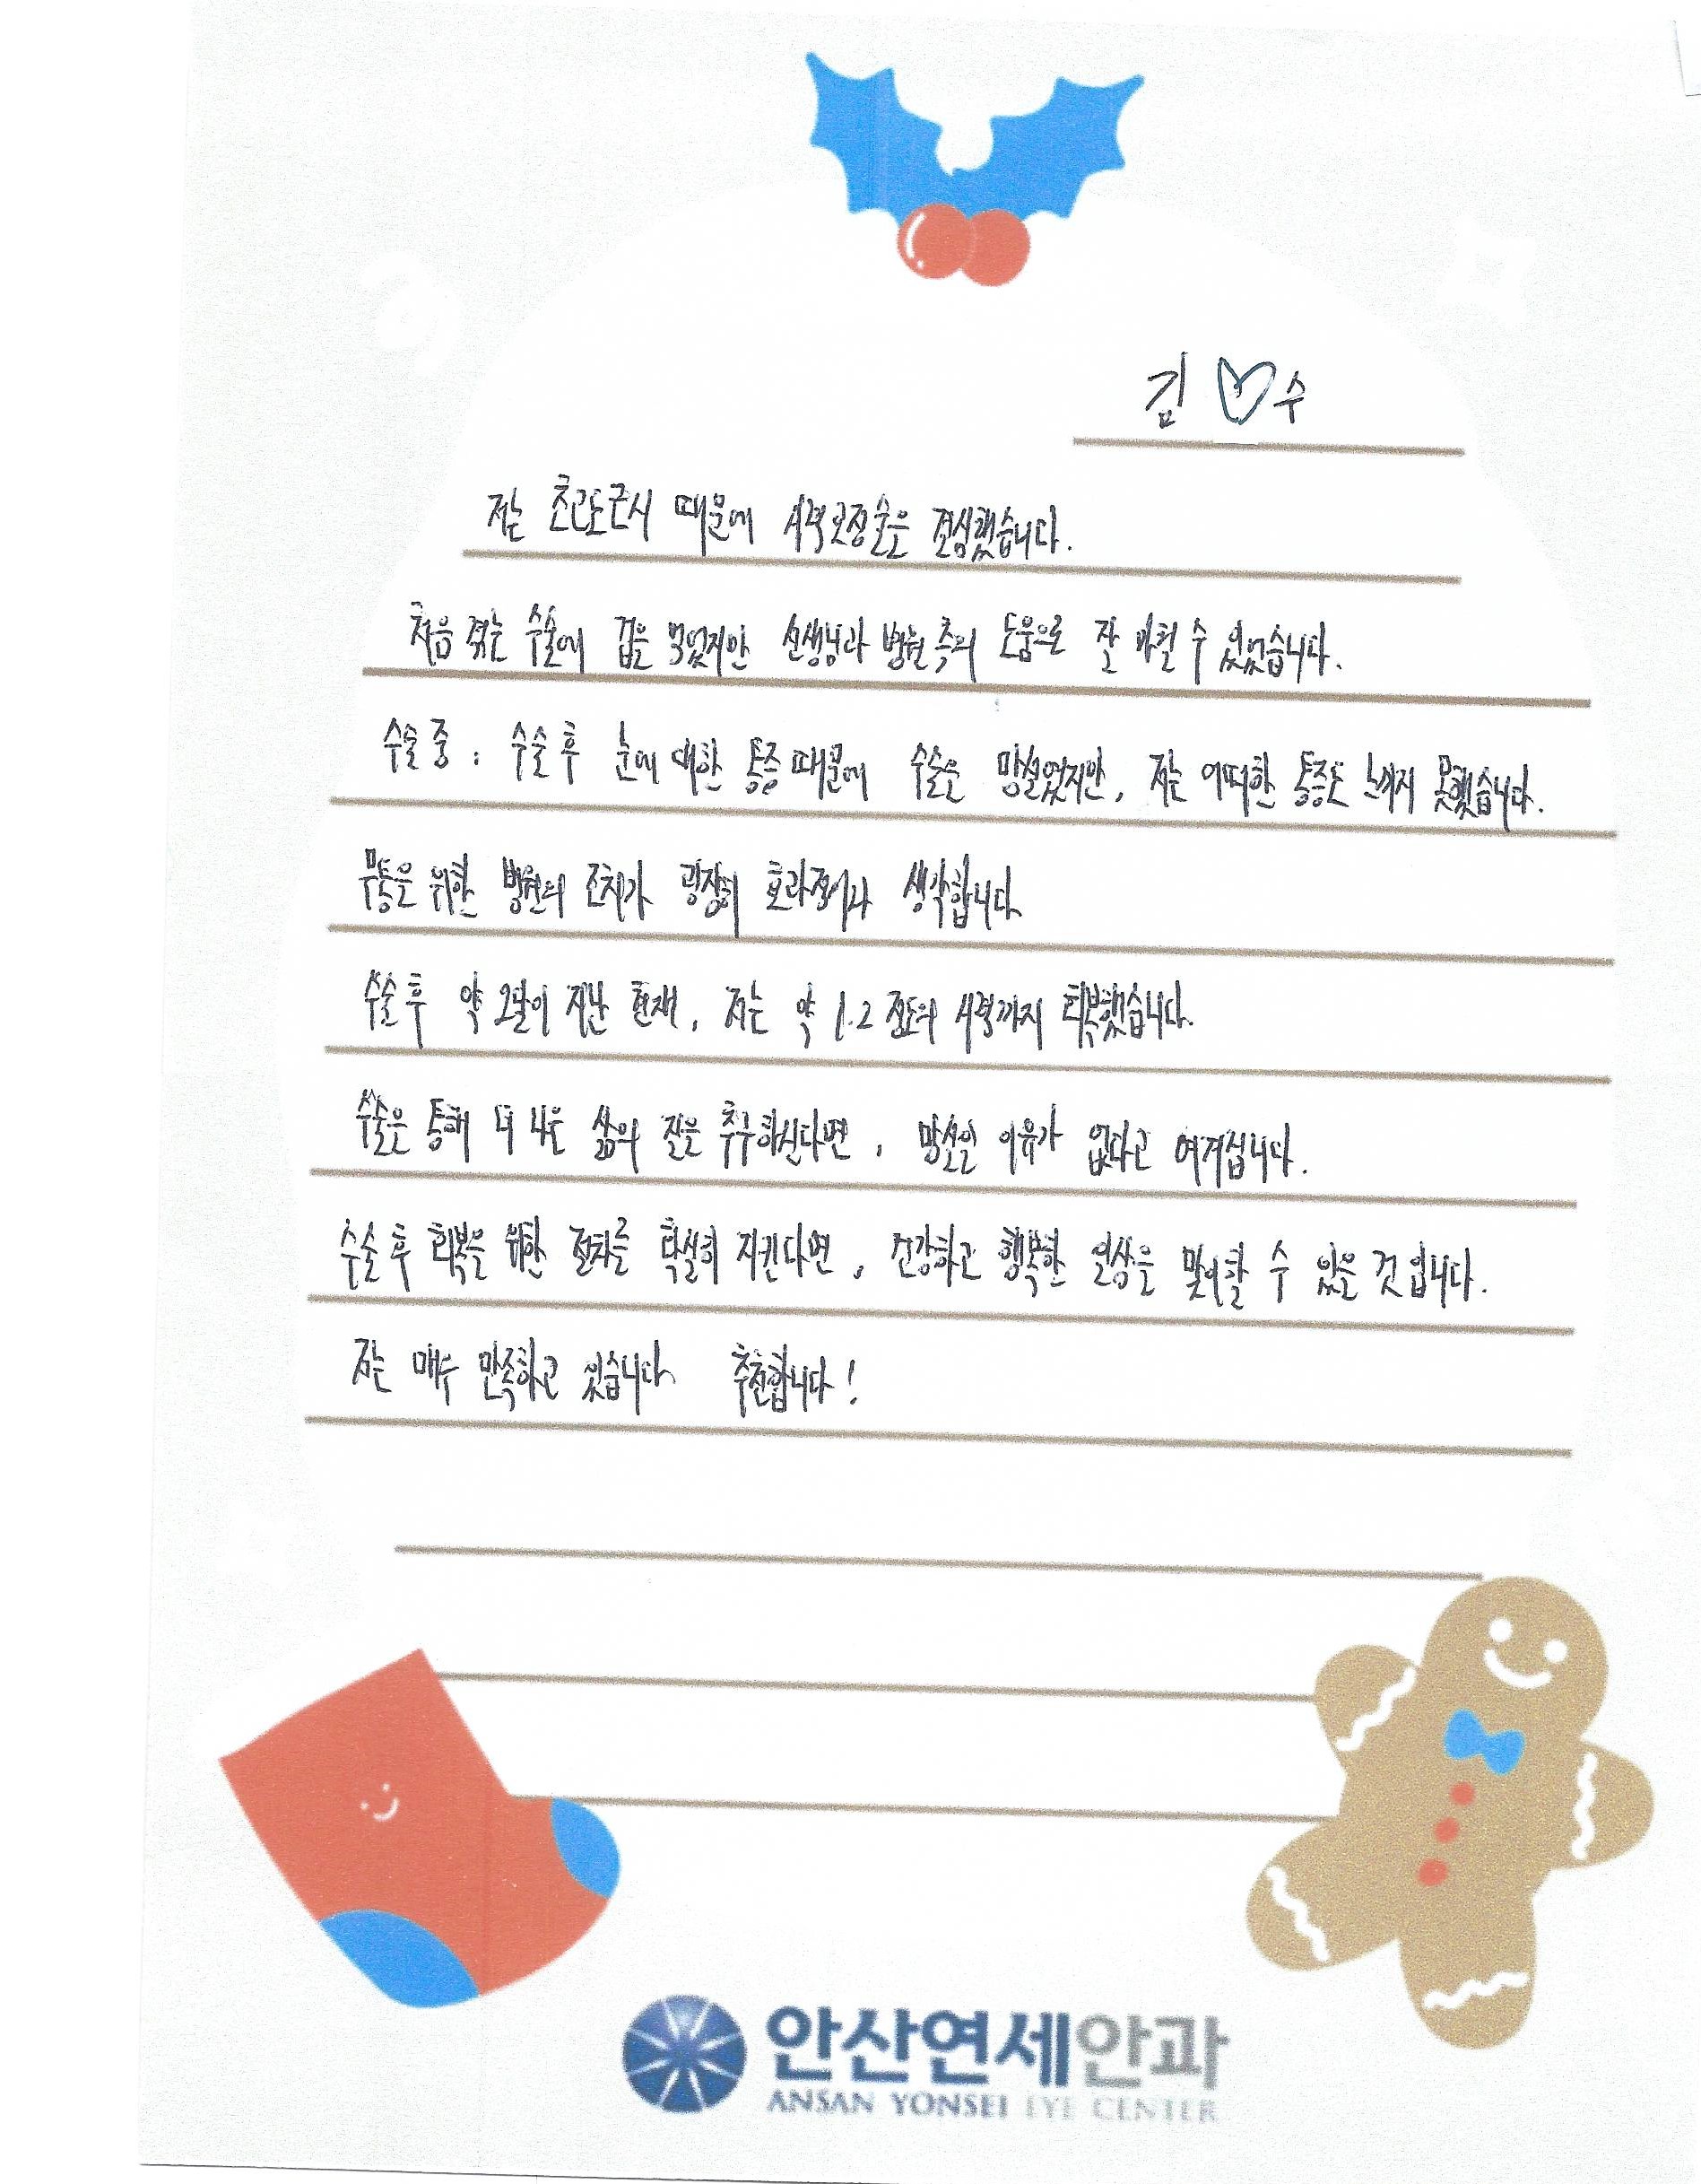 김 ♡ 수
저는 초고도근시 때문에 시력교정술을 결심했습니다.
처음 겪는 수술에 겁을 먹었지만 선생님과 병원 측의 도움으로 잘 마칠 수 있었습니다.
수술 중 · 수술 후 눈에 대한 통증 때문에 수술을 망설였지만, 저는 어떠한 통증도 느끼지 못했습니다.
무통을 위한 병원의 조치가 굉장히 효과적이라 생각합니다.
수술 후 약 2달이 지난 현재, 저는 약 1.2 정도의 시력까지 회복했습니다.
수술을 통해 더 나은 삶의 질을 추구하신다면, 망설일 이유가 없다고 여겨집니다.
수술 후 회복을 위한 절차를 확실히 지킨다면, 건강하고 행복한 일상을 맞이할 수 있을 것입니다.
저는 매우 만족하고 있습니다. 추천합니다!
안산연세안과
ANSAN YONSEI EYE CENTER